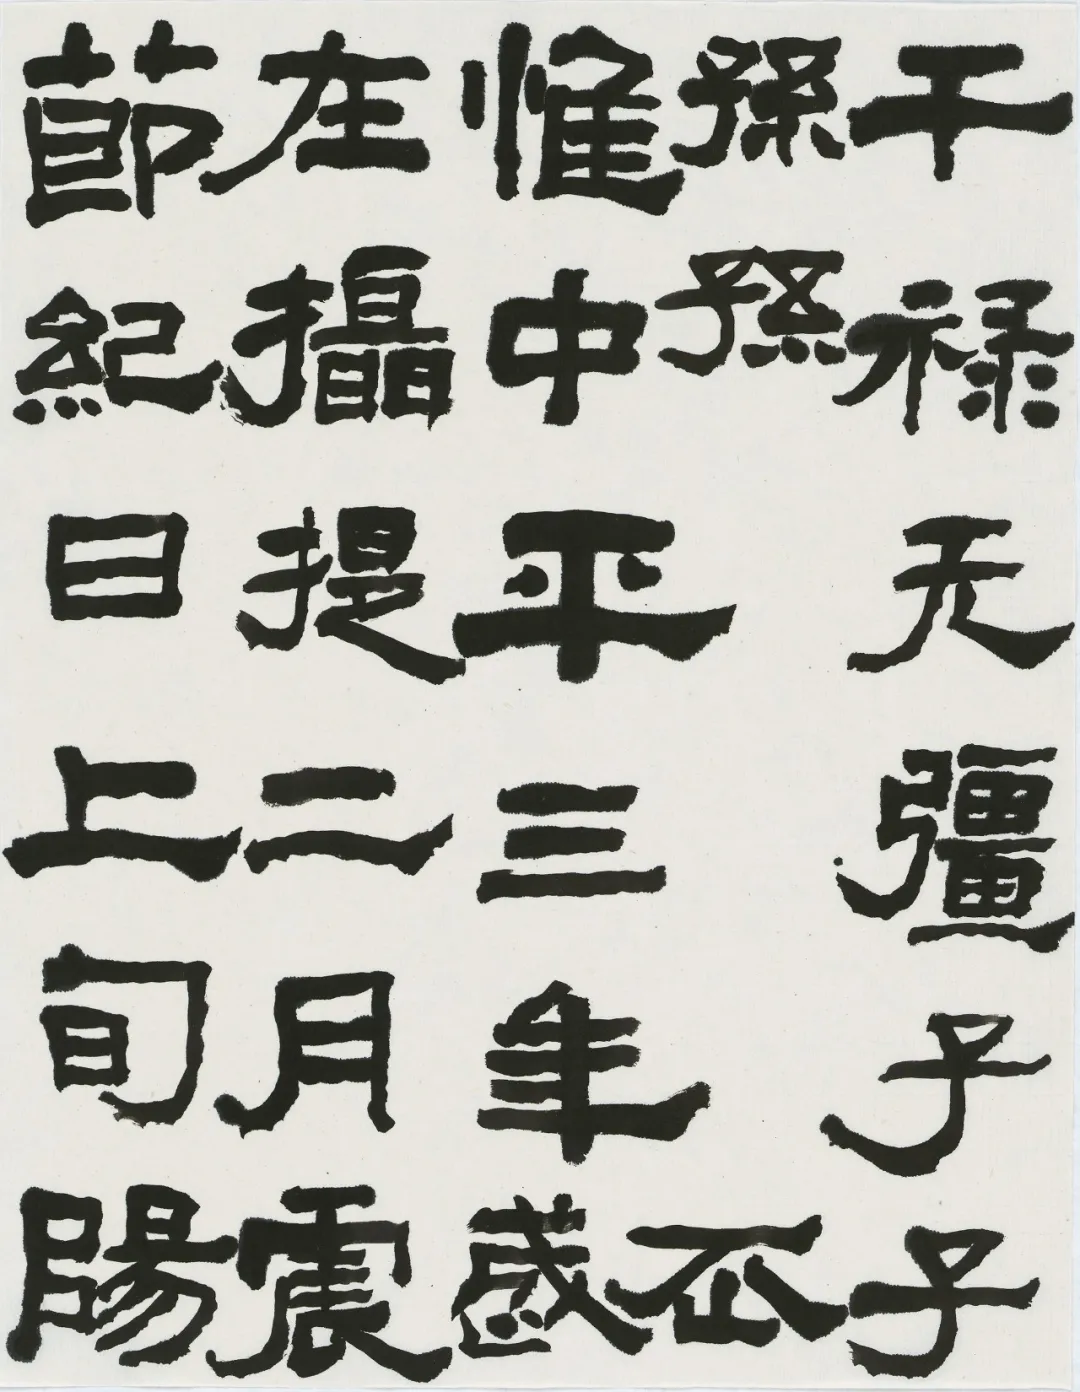 干禄无彊子子
孫孫
惟中平三年歲
在攝提二月震
節紀日上旬陽